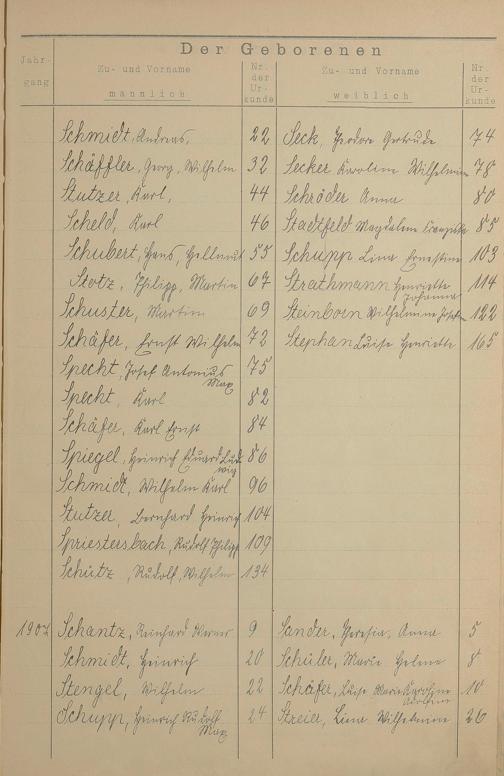 Der Geborenen
Jahr-
gang
Zu- und Vorname
männlich
Nr.
der
Ur-
kunde
Zu- und Vorname
weiblich
Nr.
der
Ur-
kunde
Schmidt, Andreas, 22 Seck, Gertrude 74
Schäffler, Georg, Wilhelm 32 Secker Karoline Wilhelmine 78
Stutzer, Karl, 44 Schröder Anna 80
Scheld, Karl 46 Stadtfeld Magdalena 85
Schubert, Hans, Hellmut 55 Schupp Lina Ernestine 103
Stotz, Philipp, Martin 67 Strathmann Henriette 114
Johanna
Schuster, Martin 69 Steinborn Wilhelmine 122
Schäfer, Ernst Wilhelm 72 Stephan Luise Henriette 165
Specht, Josef Antonius 75
Max
Specht, Karl 82
Schäfer, Karl Ernst 84
Spiegel, Heinrich Eduard Lud- 86
wig
Schmidt, Wilhelm Karl 96
Stutzer, Bernhard Heinrich 104
Spriestersbach, Rudolf Philipp 109
Schütz, Rudolf, Wilhelm 134
1907 Schantz, Reinhard Werner 9 Sander, Theresia, Anna 5
Schmidt, Heinrich 20 Schüler, Marie Helene 8
Stengel, Wilhelm 22 Schäfer, Luise Marie Karoline 10
Schupp, Heinrich Rudolf 24 Streier, Lina Wilhelmine 26
Max